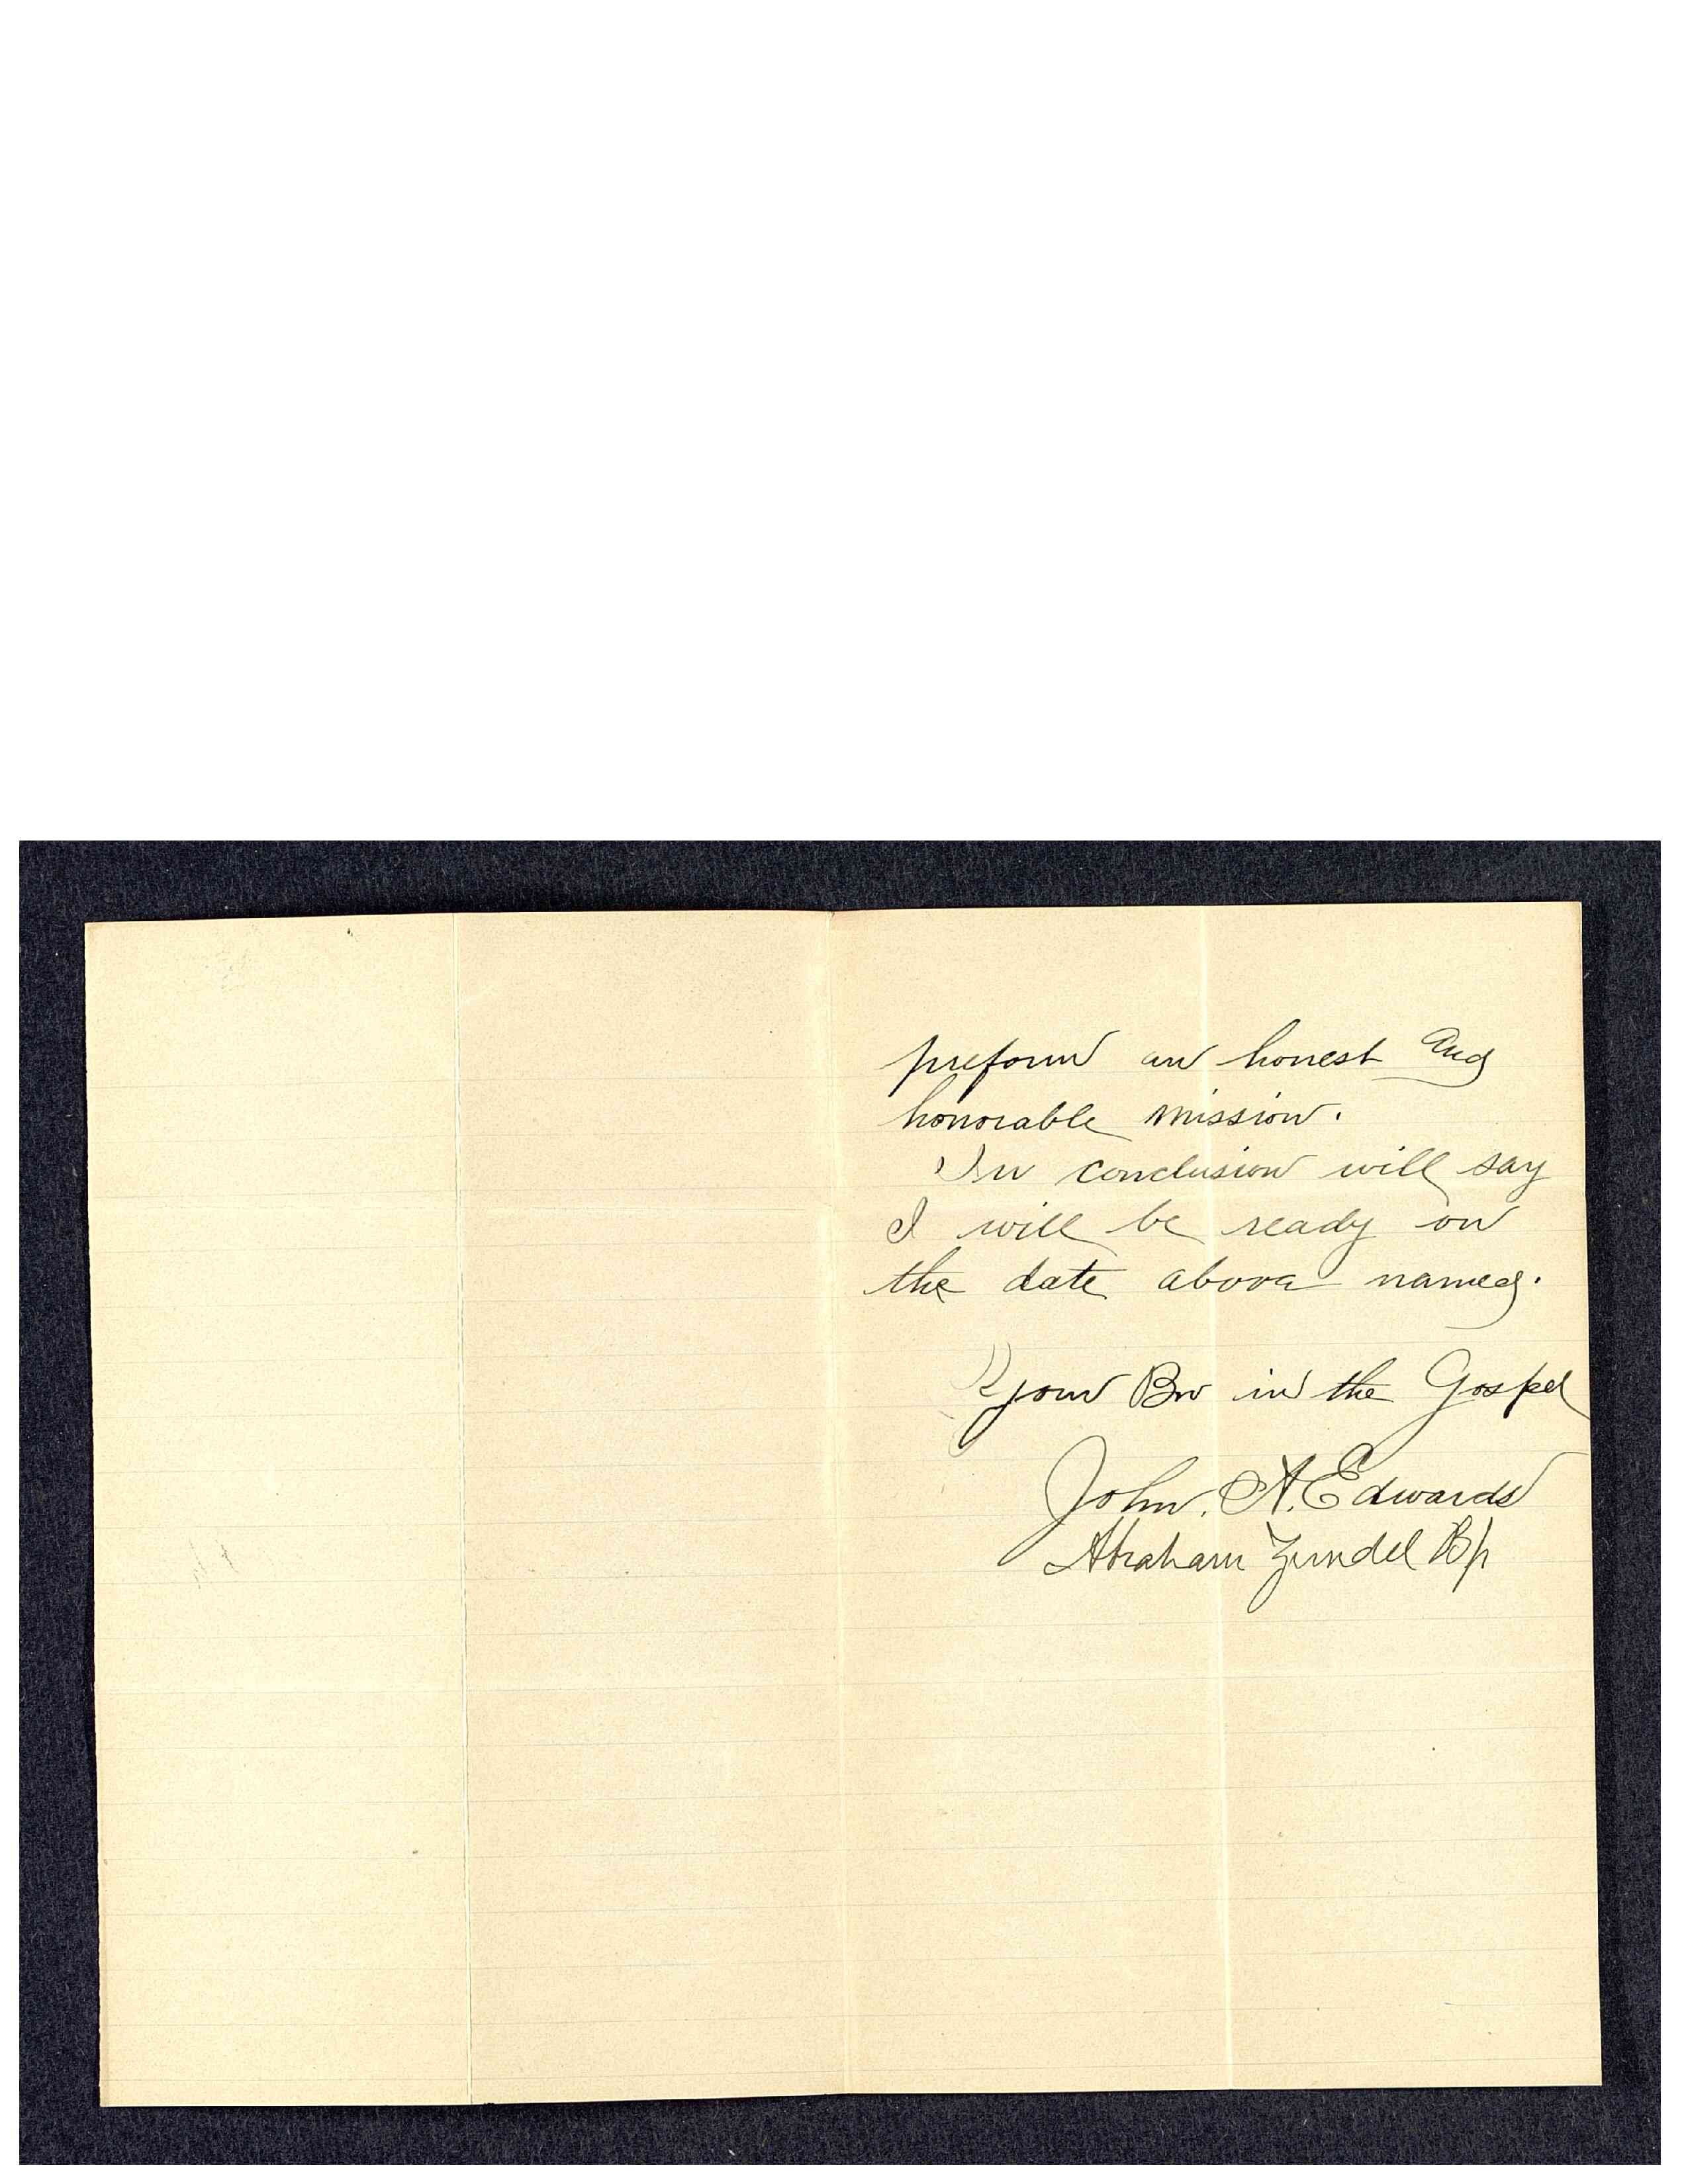 preform an honest and
honorable mission.
In conclusion will say
I will be ready on
the date above named.
your Bro in the Gospel
John. A. Edwards
Abraham Zundel Bp